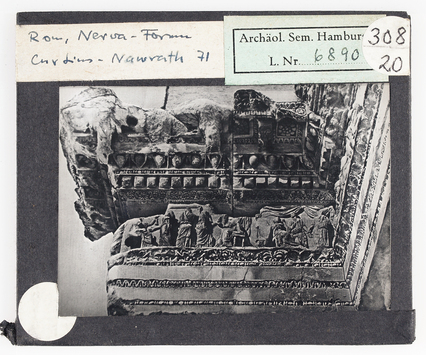 Rom, Nerva-Forum
Curtius-Nawrath 71
Archäol. Sem. Hamburg
L. Nr. 6890
308
20